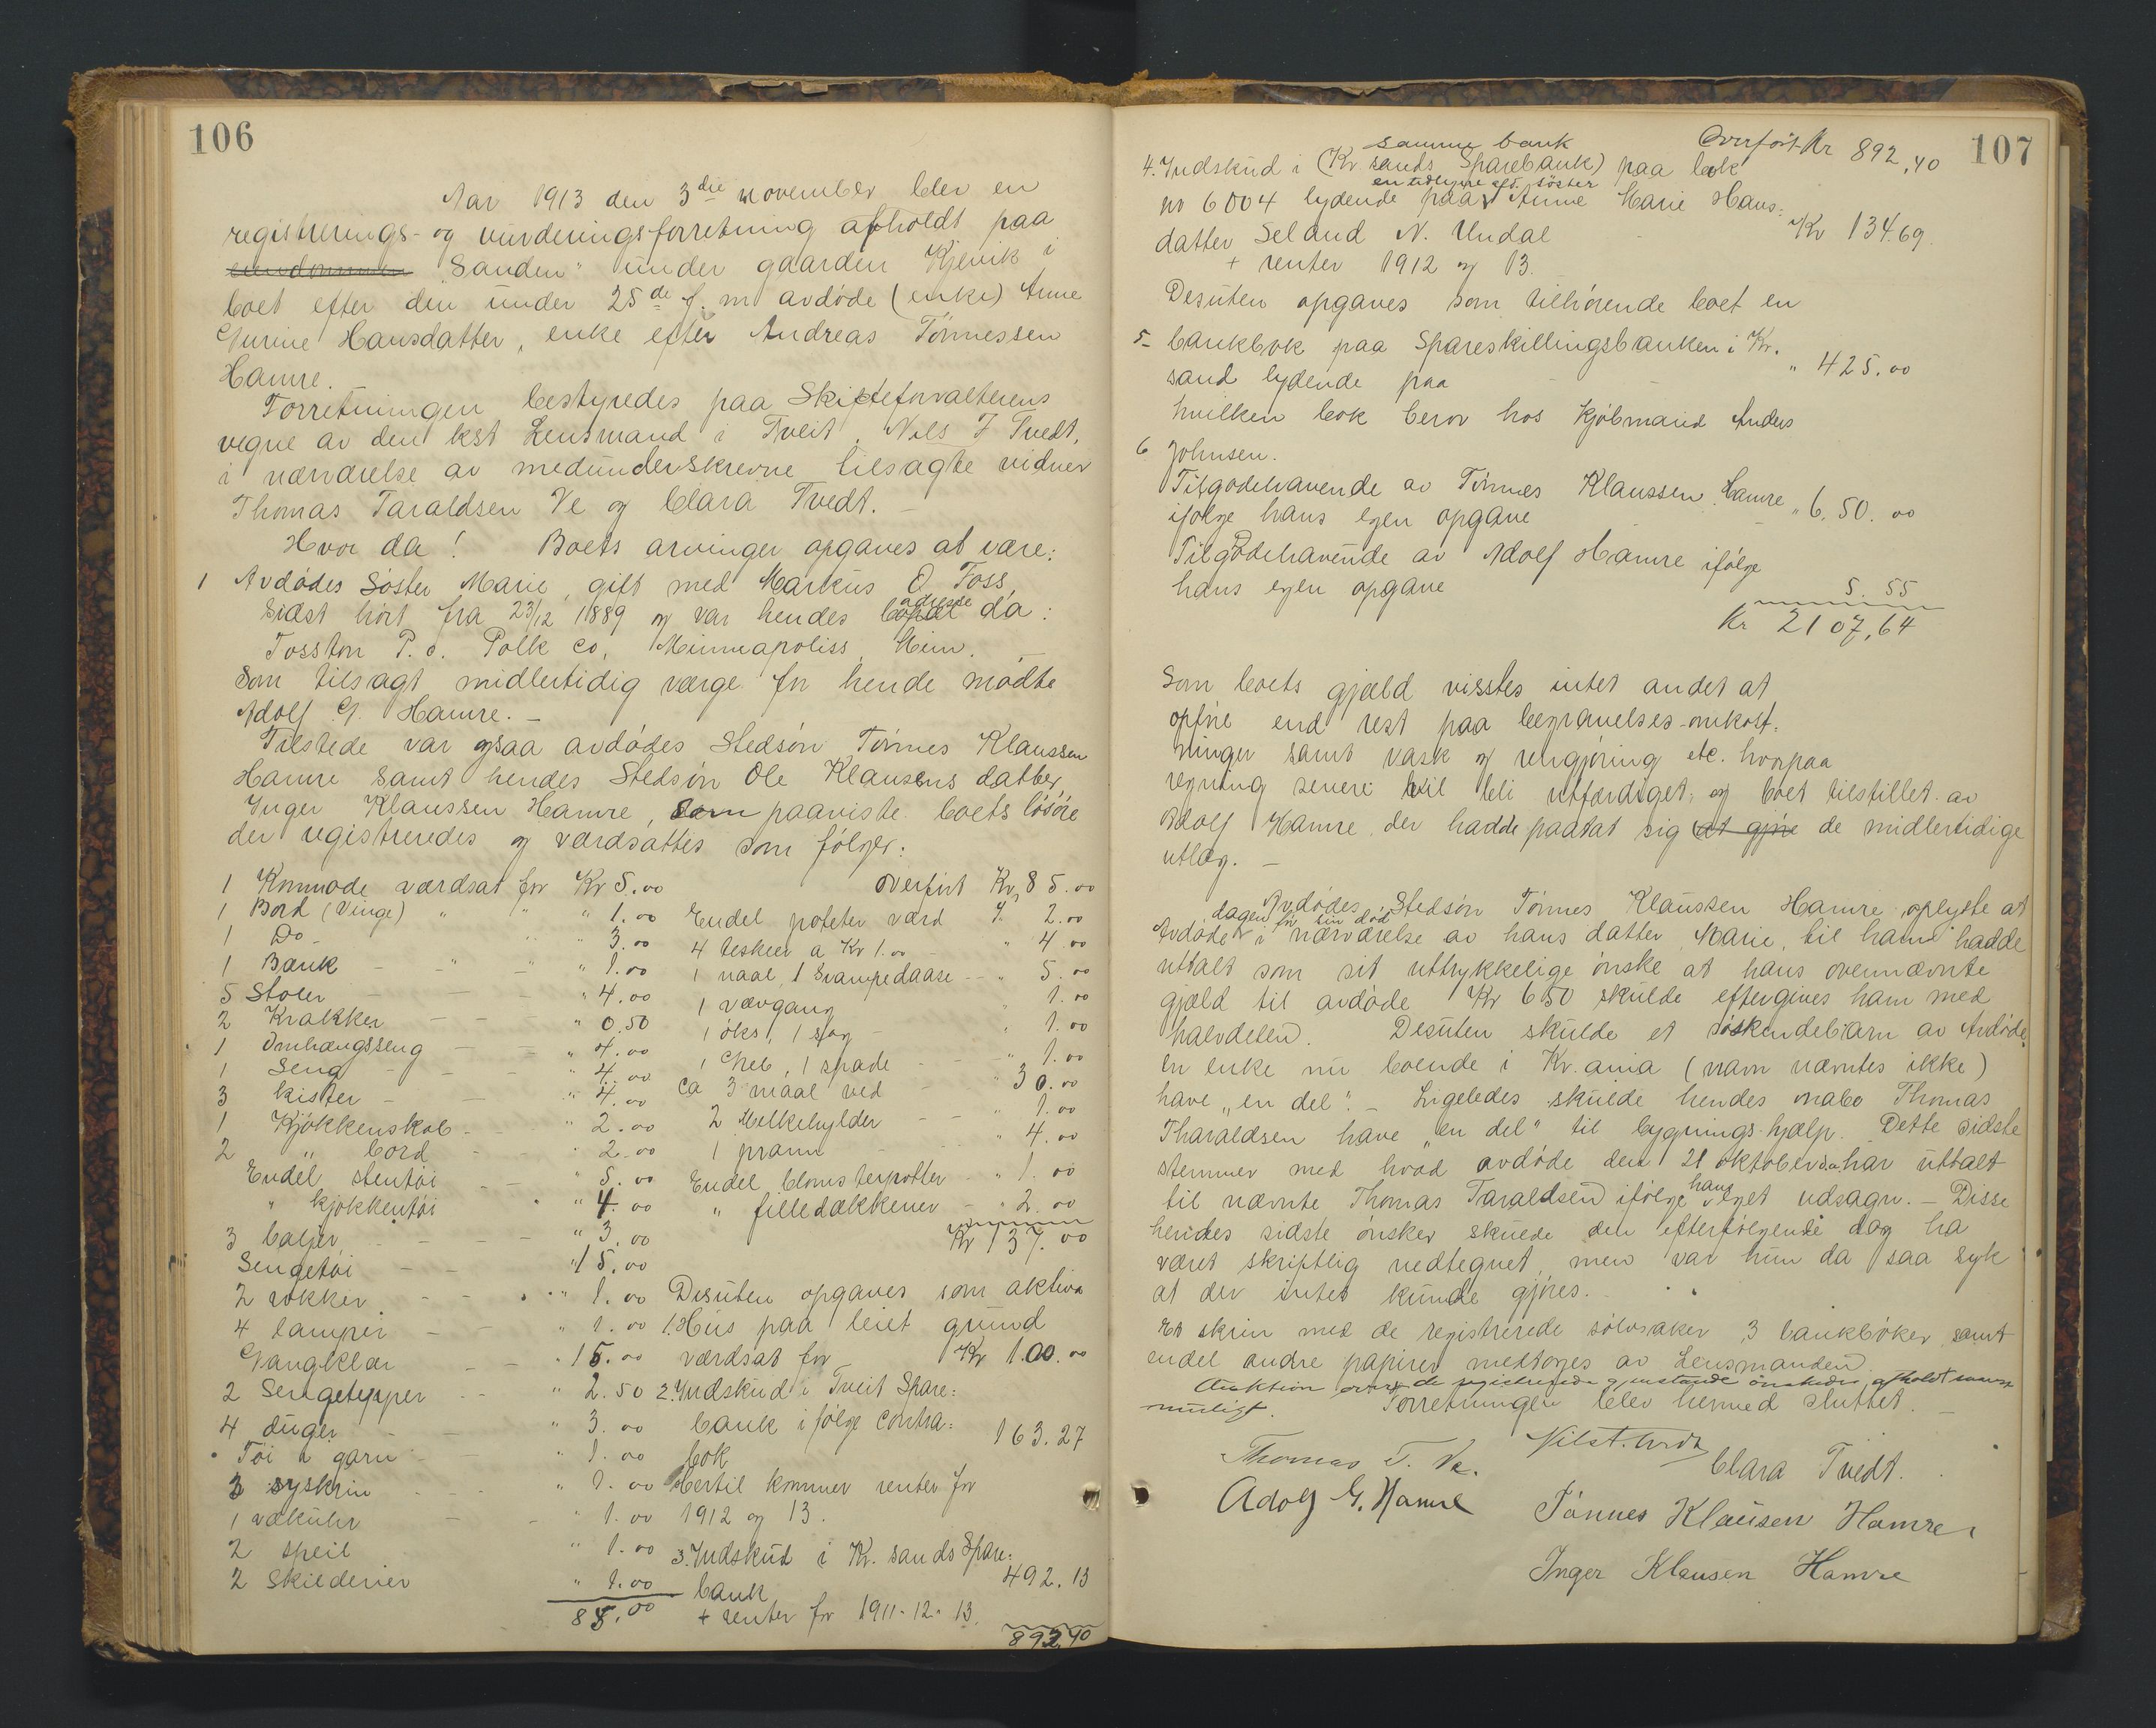 106
Aar 1913 den 3die november blev en
registrerings- og vurderingsforretning afholdt paa
eiendommen "Sanden" under gaarden Kjevik i
boet efter den under 25de f. m avdöde (enke) Anne
Gurine Hansdatter, enke efter Andreas Tönnessen
Hamre.
Forretningen bestyredes paa Skifteforvalterens
vegne av den kst Lensmand i Tveit, Nils T Tvedt,
i nærværelse av medunderskrevne tilsagte vidner
Thomas Taraldsen Ve og Clara Tvedt. -
Hvor da! Boets arvinger opgaves at være:
1 Avdödes Söster Marie, gift med Markus O. Foss,
Sidst hört fra 23/12 1889 og var hendes bopæl adresse da:
Fosston P.o. Polk Co, Minneapoliss, Minn. -
Som tilsagt midlertidig værge for hende mödte
Adolf G. Hamre. -
Tilstede var ogsaa avdödes Stedsön Tönnes Klaussen
Hamre samt hendes Stedsön Ole Klausens datter
Inger Klaussen Hamre, som paaviste boets lösöre
der registreredes og værdsattes som fölger:
1 Kommode værdsat for Kr 5.00
1 Bord (Vinge) " " " 1.00
1 Do - " " " 3.00
1 Bænk - " - " 1.00
5 Stoler - - - " 4.00
2 Krakker - - - " 0.50
1 Omhængsseng - - " 4.00
1 Seng - - - " 4.00
3 kister - - - " 4.00
1 Kjökkenskab - - " 2.00
2 " bord - - " 2.00
Endel stentöi - - " 5.00
" kjökkentöi " 4.00
3 baljer - - - " 3.00
Sengetöi - - " 15.00
2 rokker - - " 1.00
4 lamper - - " 1.00
Gangklær - - " 15.00
2 Sengetepper - - " 2.50
4 duger - - " 3.00
Töi & garn - " 1.00
3 syskrin - - " 1.00
1 vækuhr - - " 1.00
2 speil " 1.00
2 Skilderier " 1.00
85.00
Overfört Kr 85.00
Endel poteter værd " 2.00
4 teskeer a Kr 1.00 - " 4.00
1 naal, 1 Svampedaase - - " 5.00
1 vævgang " 1.00
1 öks, 1 sag - " 1.00
1 greb, 1 spade - - " 1.00
ca 3 maal ved - " 30.00
2 Melkehylder - " 1.00
1 pram - - " 4.00
Endel blomsterpotter - " 1.00
" filledækkener - " 2.00
Kr 137.00
Desuten opgaves som aktiva
1. Hus paa leiet grund
værdsat for Kr 100.00
2. Indskud i Tveit Spare=
bank ifölge contra= 163.27
bok
Hertil kommer renter for
1912 og 13.
3. Indskud i Kr. sands Spare=
bank 492.13
+ renter for 1911-12-13.
892,40
107
Overfört Kr 892,40
samme bank
4. Indskud i (Kr sands Sparebank) paa bok
en tidligere afd. söster
no 6004 lydende paa Anne Marie Hans=
datter Seland N. Undal - Kr 134.69.
+ renter 1912 og 13.
Desuten opgaves som tilhörende boet en
5- bankbok paa Spareskillingsbanken i Kr.
sand lydende paa - - " 425.00
hvilken bok beror hos Kjöbmand Anders
6 Johnsen.
Tilgodehavende av Tönnes Klaussen Hamre " 6,50.00
ifölge hans egen opgave
Tilgodehavende av Adolf Hamre ifölge
hans egen opgave 5.55
Kr 2107,64
Som boets gjæld visstes intet andet at
opföre end rest paa begravelses-omkost=
ninger samt vask og rengjöring etc. hvorpaa
regning senere vil bli utfærdiget, og boet tilstillet av
Adolf Hamre, der hadde paatat sig at gjöre de midlertidige
utlæg. -
Avdödes Stedsön Tönnes Klaussen Hamre oplyste at
dagen för sin död
Avdöde i nærværelse av hans datter Marie, til ham hadde
uttalt som sit uttrykkelige önske at hans ovennævnte
gjæld til avdöde Kr 650 skulde eftergives ham med
halvdelen. Desuten skulde et söskendebarn av Avdöde,
en enke nu boende i Kr.ania (navn nævntes ikke)
have "en del". - Ligeledes skulde hendes nabo Thomas
Tharaldsen have "en del" til bygnings-hjælp. Dette sidste
stemmer med hvad avdöde den 21 oktober d.a. har uttalt
til nævnte Thomas Taraldsen ifölge hans eget udsagn. - Disse
hendes sidste önsker skulde den efterfölgende dag ha
været skriftlig nedtegnet, men var hun da saa syk
at der intet kunde gjöres.
Et skrin med de registrerede sölvsaker, 3 bankböker samt
endel andre papirer medtoges av Lensmanden.
Auktion over de registrerede gjenstande önskedes afholdt snarest
muligt. Forretningen blev hermed sluttet. -
Nils T. Tvedt
Thomas T. Ve. Clara Tvedt.
Adolf G. Hamre Tönnes Klausen Hamre
Inger Klausen Hamre